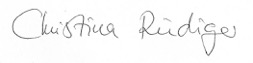 Christina Rüdiger